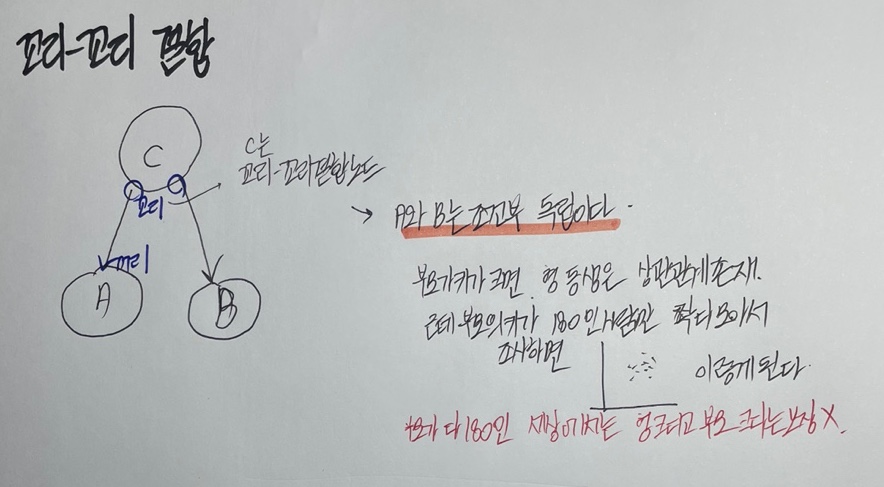 꼬리-꼬리 결합
C
C는
꼬리-꼬리결합노드
꼬리
머리
A
B
→ A와 B는 조건부 독립이다.
부모가 키가 크면, 형 동생은 상관관계 존재.
근데 부모의 키가 180인 사람만 싹다 모아서
조사하면
이렇게 된다.
부모가 다 180인 세상에서는 형크다고 부모 크다는 보장 X.